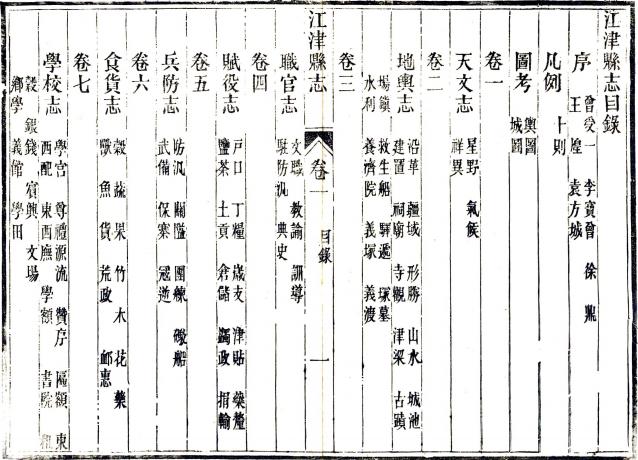 江津縣志目錄
序 曾受一 李寶曾 徐鼎
王煌 袁方城
凡例 十則
圖考 輿圖
城圖
卷一
天文志 星野 氣候
祥異
卷二
地輿志 沿革 疆域 形勝 山水 城池
建置 祠廟 寺觀 津梁 古蹟
場鎮 救生船 驛遞 塚墓
水利 養濟院 義塚 義渡
卷三
江津縣志 卷一 目錄 一
職官志 文職 教諭 訓導
駐防汛 典史
卷四
賦役志 戸口 丁糧 歲支 津貼 藥釐
鹽茶 土貢 倉儲 蠲政 捐輸
卷五
兵防志 防汛 關隘 團練 礮船
武備 保寨 冦逆
卷六
食貨志 穀 蔬 果 竹 木 花 藥
獸 魚 貨 荒政 邮惠
卷七
學校志 學宮 尊禮源流 贊序 匾額 東
西配 東西廡 學額 書院
穀 銀錢 賓興 文場
鄉學 義館 學田